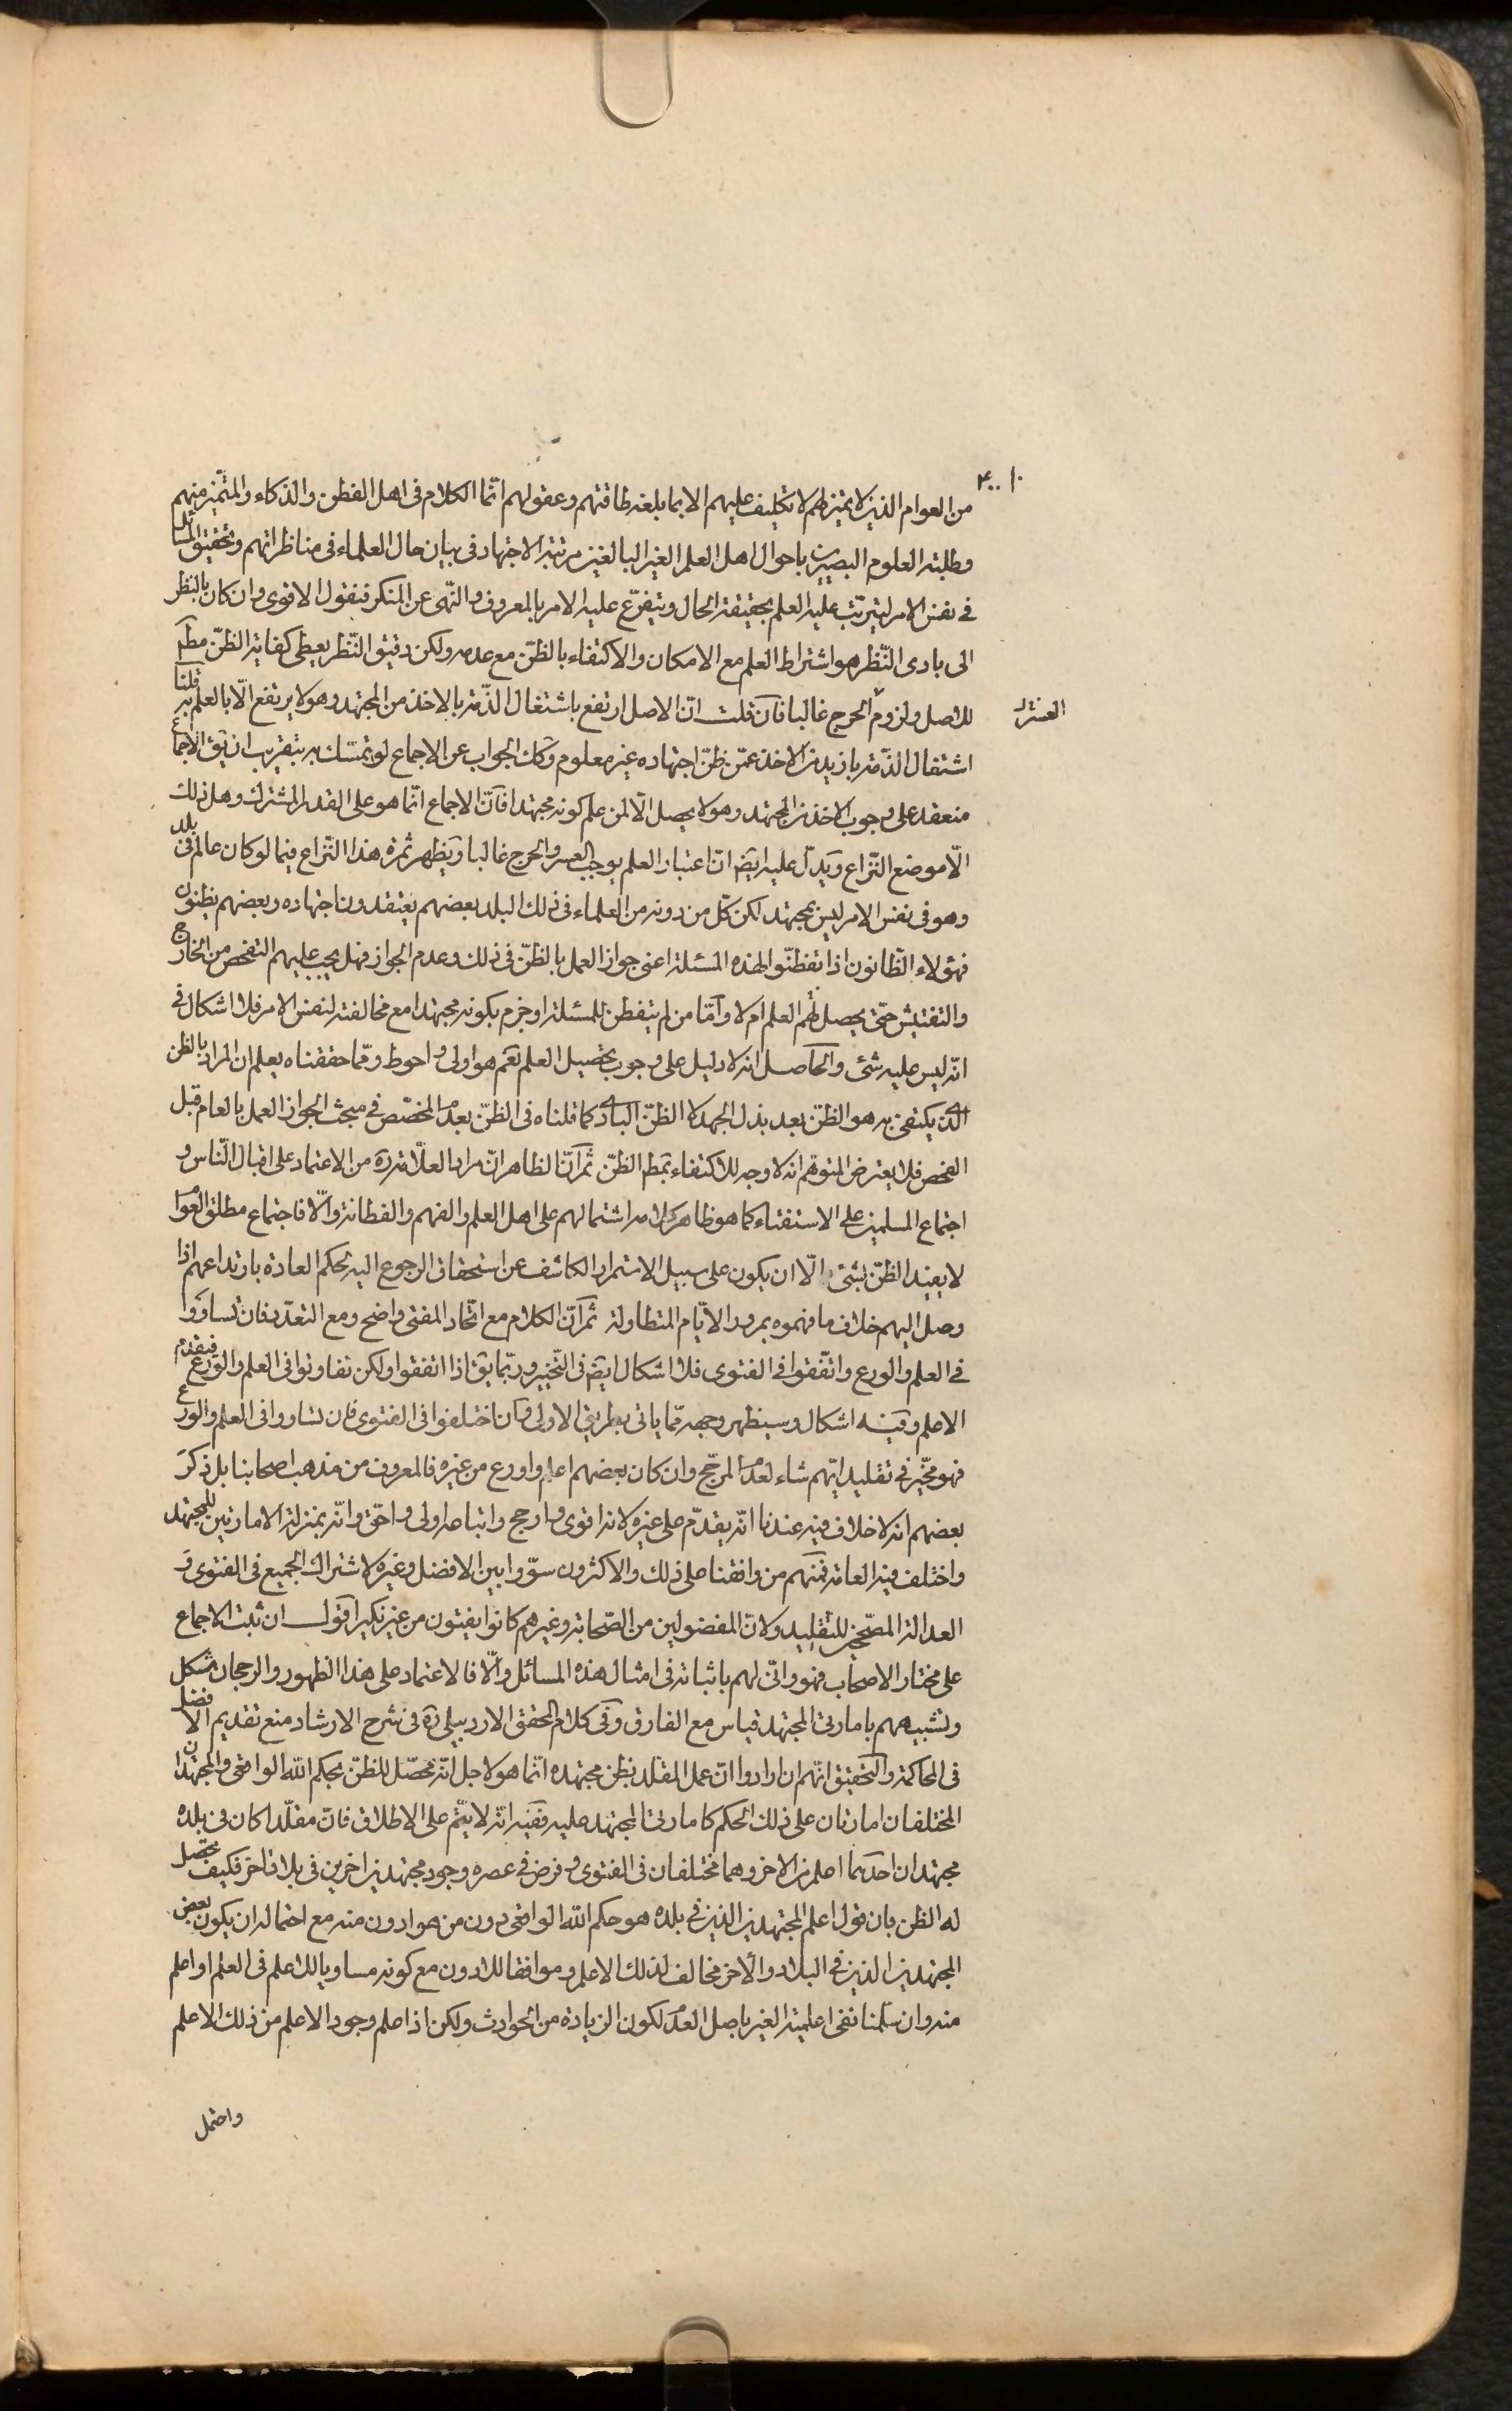 ۴۰۰
من العوام الذين لا تميز لهم لا تكليف عليهم الا بما بلغه طاقتهم وعقولهم انّما الكلام فى اهل الفطن والذكاء والمتميّز منهم
وطلبة العلوم البصيرين باحوال اهل العلم الغير البالغين مرتبة الاجتهاد فى بيان حال العلماء فى مناظراتهم وتحقيق المسائل
فى نفس الامر ليترتّب عليه العلم بحقيقة الحال ويتفرّع عليه الامر بالمعروف والنّهى عن المنكر فنقول الاقوى وان كان بالنظر
الى بادى النّظر هو اشتراط العلم مع الامكان والاكتفاء بالظنّ مع عدمه ولكن دقيق النّظر يعطى كفاية الظنّ مطم
للاصل ولزوم الحرج غالبا فان قلت انّ الاصل ارتفع باشتغال الذّمة بالاخذ من المجتهد وهو لا يرتفع الّا بالعلم به قلنا
العسر و
اشتغال الذّمة بازيد من الاخذ عمّن ظنّ اجتهاده غير معلوم وكك الجواب عن الاجماع لو تمسّك به بتقريب ان يق الاجماع
منعقد على وجوب الاخذ من المجتهد وهو لا يحصل الّا لمن علم كونه مجتهدا فانّ الاجماع انّما هو على القدر المشترك وهل ذلك
الّا موضع النّزاع ويدلّ عليه ايضم انّ اعتبار العلم يوجب العسر والحرج غالبا ويظهر ثمرة هذا النّزاع فيما لو كان عالم فى بلد
وهو فى نفس الامر ليس بمجتهد لكن كلّ من دونه من العلماء فى ذلك البلد بعضهم يعتقدون اجتهاده وبعضهم يظنون
فهؤلاء الظّانون اذا تفطنّوا لهذه المسئلة اعنى جواز العمل بالظنّ فى ذلك وعدم الجواز فهل يجب عليهم التفحص من الخارج
والتفتيش حتّى يحصل لهم العلم ام لا وامّا من لم يتفطن للمسئلة او جزم بكونه مجتهدا مع مخالفته لنفس الامر فلا اشكال فى
انّه ليس عليه شئ والحاصل انه لا دليل على وجوب تحصيل العلم نعم هو اولى واحوط وممّا حققناه يعلم ان المراد بالظن
الّذى يكتفى به هو الظنّ بعد بذل الجهد لا الظنّ البادى كما قلناه فى الظنّ بعدم المخصّص فى مبحث الجواز العمل بالعام قبل
الفحص فلا يعترض المتوهّم انه لا وجه للاكتفاء بمط الظنّ ثم انّ الظاهر انّ مراد العلّامة ره من الاعتماد على اقبال النّاس و
اجتماع المسلمين على الاستفتاء كما هو ظاهر كلامه اشتمالهم على اهل العلم والفهم والفطانة والّا فاجتماع مطلق العوام
لا يفيد الظنّ بشئ الّا ان يكون على سبيل الاستمرار الكاشف عن استحقاق الرجوع اليه لحكم العادة بارتداعهم اذا
وصل اليهم خلاف ما فهموه بمرور الايّام المتطاولة ثم انّ الكلام مع اتّحاد المفتى واضح ومع التعدّد فان تساووا
فى العلم والورع واتّفقوا فى الفتوى فلا اشكال ايضم فى التّخيير وربّما يق اذا اتفقوا ولكن تفاوتوا فى العلم والورع فيقدّم
الاعلم وفيه اشكال وسيظهر وجهه ممّا ياتى بطريق الاولى وان اختلفوا فى الفتوى فان تساووا فى العلم والورع
فهو مخيّر فى تقليد ايّهم شاء لعدم المرجّح وان كان بعضهم اعلم واورع من غيره فالمعروف من مذهب اصحابنا بل ذكر
بعضهم انه لا خلاف فيه عندنا انّه يقدّم على غيره لانه اقوى وارجح واتباعه اولى واحق وانّه بمنزلة الامارتين للمجتهد
واختلف فيه العامة فمنهم من وافقنا على ذلك والاكثرون سوّوا بين الافضل وغيره لاشتراك الجميع فى الفتوى و
العدالة المصحّحين للتقليد ولانّ المفضولين من الصّحابة وغيرهم كانوا يفتون من غير نكير اقول ان ثبت الاجماع
على مختار الاصحاب فهو وانّى لهم باثباته فى امثال هذه المسائل والّا فالاعتماد على هذا الظهور والرجحان مشكل
وتشبيههم بامارتى المجتهد قياس مع الفارق وفى كلام المحقق الاردبيلى ره فى شرح الارشاد منع تقديم الافضل
فى المحاكمة والتحقيق انّهم ان ارادوا انّ عمل المقلد بظن مجتهده انّما هو لاجل انّه محصّل للظنّ بحكم الله الواقعى والمجتهدان
المختلفان امارتان على ذلك الحكم كامارتى المجتهد عليه ففيه انّه لا يتّم على الاطلاق فانّ مقلّدا كان فى بلده
مجتهدان احدهما اعلم من الاخر وهما مختلفان فى الفتوى وفرض فى عصره وجود مجتهدين اخرين فى بلاد اخر فكيف يحصل
له الظن بان قول اعلم المجتهدين الذين فى بلده هو حكم الله الواقعى دون من هو ادون منه مع احتمال ان يكون بعض
المجتهدين الذين فى البلاد والاخر مخالف لذلك الاعلم وموافقا للادون مع كونه مساويا للاعلم فى العلم او اعلم
منه وان سلّمنا نفى اعلمية الغير باصل العدم لكون الزيادة من الحوادث ولكن اذا علم وجود الاعلم من ذلك الاعلم
واحتمل